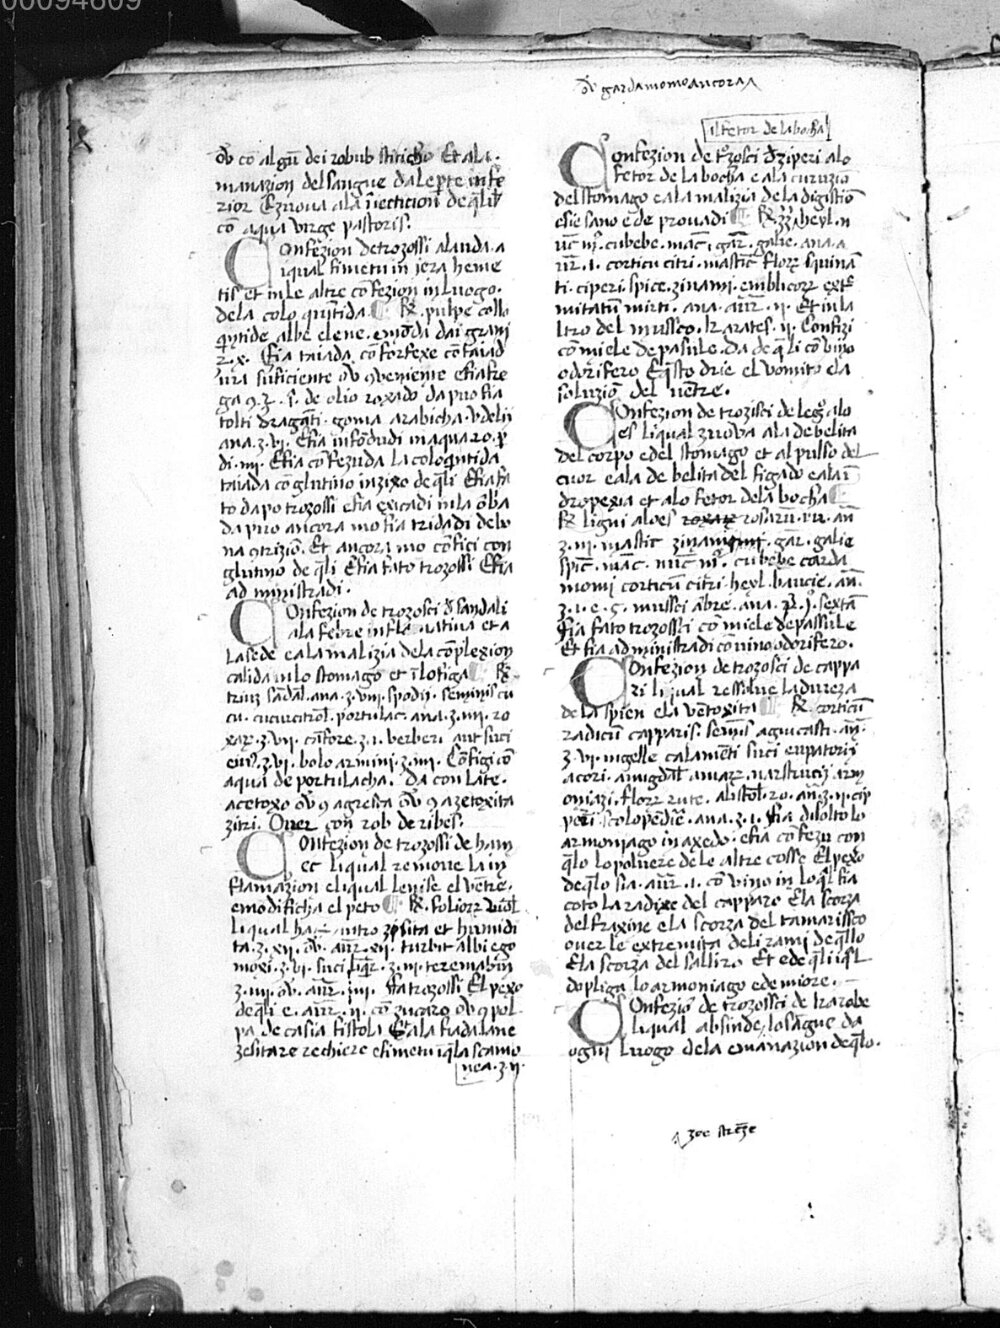 00094609
ov̄ gardamomo ancora
il fetor de la bocha
ov̄ cō algū dei robub stitichi Et a la
manazion del sangue da le p̄te infe
rior E zuova a la īiecticion de q̄li
cō aqua virge pastoris.
Confezion de trozossi alanda a
i qual si metu in jera heme
tis et in le altre cōfezion in luogo
de la coloquītida ¶ ℞ pulpe collo
q̄ntide albe e lene e mōda dai grani
ʒ x. E fia taiada cō forfexe cō taiad
ura suficiente ov̄ 9veniente e fia fre
ga 9 ʒ. s. de olio roxado da puo fia
tolti draganti. goma arabicha. vdelii
ana. ʒ. vi. E fia infōdudi in aqua ro. p
di. iiii. E fia cōfezuda la coloq̄ntida
taiada cō glutino inzixo de q̄li E fia fa
to dapo trozossi e fia exicadi in la ōbra
da puo ancora mo fia tridadi de bo
na 9trizion. Et ancora mo confici con
glutino de q̄li E fia fato trozossi E fia
administradi.
Confezion de trozosci d sandali
a la febre infla nativa et a
la sede e a la malizia de la cōplexion
calida in lo stomago et ī lo figa ¶ ℞
trium sādal. ana. ʒ. viii. spodii. seminis cu
cu. cucurcitol. portulac. ana. ʒ. iiii. ro
xar. ʒ. vii. cāfore. ʒ. i. berberi aut suci
eius. ʒ. vi. bolo armini. ʒ. iiii. Cōfigi cō
aqua de portulacha. Da con late
acetoxo ov̄ 9 agresta ov̄ 9 azetoxita
zitri. Over con rob de ribes.
Confezion de trozossi de ham
ec li qual remove la in
flamazion e li qual lenise el vētre
e modificha el peto ¶ ℞ foliorz viol
li qual ha intro zosita et humidi
ta. ʒ. xii. ov̄ aur. xii. turbit albi ego
moxi. ʒ. vi. suci liqr. ʒ. iii. teremabin
ʒ. iiii. ov̄. aur. iiii. fa trozossi El pexo
de q̄li e. aur. ii. cō zucaro ov̄ 9 pol
pa de casia fistola E a la fiada la ne
zesitare rechiere e si metu ī q̄la scamo
nea. ʒ. ii.
Confezion de trozosci d ziperi a lo
fetor de la bocha e a la coruzio
del stomago e a la malizia de la digistiō
e si e sano e de provadi ¶ ℞ zz. heyl. n
uc m. cubebe. mac. gar. galie. ana. a
ur. i. corticu citri. mastic flor squinā
ti. ciperi. spice. zinami. emblicorz extr
mitatum mirti. ana. aur. ii. Et in la
ltro del mussco. karates. ii. Confizi
cō miele de pasule. da de q̄li cō vino
odorifero E q̄sto drie el vomito e la
soluziō del ventre.
Confezion de trozisci de legō alo
es li qual zuova a la debelita
del corpo e del stomago et al pulso del
cuor e a la debelita del figado e a la i
dropexia et a lo fetor de la bocha ¶
℞ ligni aloes rosarū. ru. an
ʒ. iii. mastic zinami. gar. galie
spic. mac. nuc m. cubebe carda
momi corticum citri. heyl. baucie. an.
ʒ. i. e. s. mussci ābre. ana. sextā
fia fato trozossi cō miele de passule
Et fia administradi cō vino odorifero.
Confezion de trozosci de cappa
ri li qual ressolve la dureza
de la spien e la vētoxita ¶ ℞ corticū
radicum capparis. semis agnucasti. an.
ʒ. vi. nigelle calamēti suci eupatorii
acori. amigdal amar. narstucii arm
oniazi. flor rute. abstol. ro. an. ʒ. ii. cip
peri. scolopēdie. ana. ʒ. i. fia disolto lo
armoniago in axedo. e fia cōfezu con
q̄lo lo polvere de le altre cosse El pexo
de q̄lo sia. aur. i. cō vino in lo q̄l fia
coto la radixe del capparo E la scorza
del fraxine e la scorza del tamarissco
over le extremita de li rami de q̄llo
E la scorza del salliro. Et e de q̄li i q̄l
dopliga lo armoniago ede miore.
Confezio de trozossci de karabe
li qual absinde lo sangue da
ogni luogo de la emanazion de q̄lo.
zoe strēze